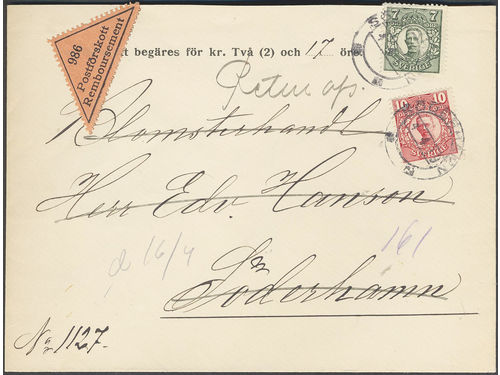 986
Postförskott
Remboursement
t begäres för kr. Två (2) och 17 öre
7
SVERIGE
Retur afs.
10 10
SVERIGE
Blomsterhandl
Herr Edv. Hanson
do 16/4
161
Söderhamn
No 1127.